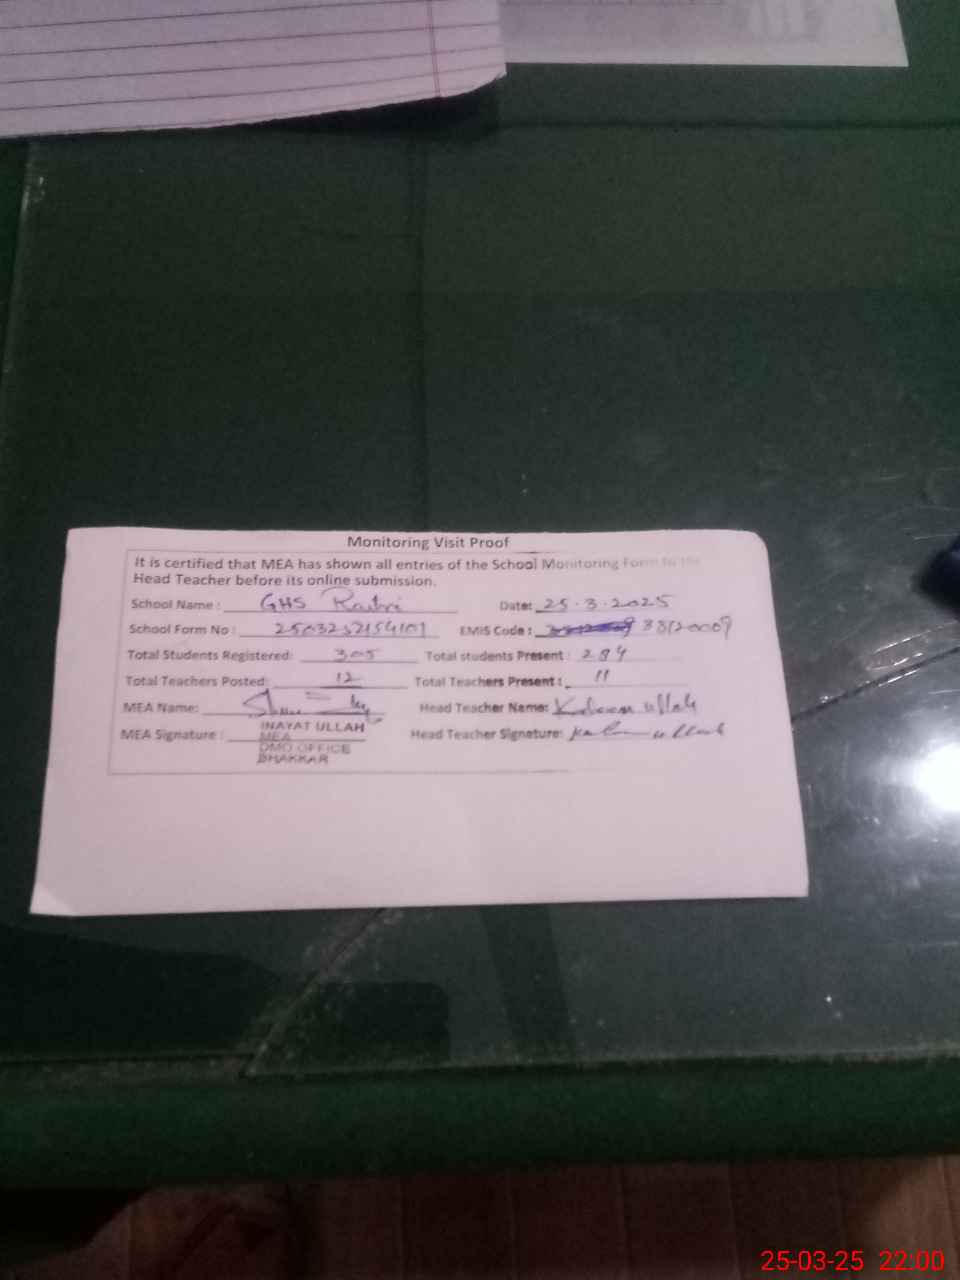 Monitoring Visit Proof
It is certified that MEA has shown all entries of the School Monitoring Form to the
Head Teacher before its online submission.
School Name : GHS Date: 25.3.2025
School Form No : EMIS Code : 38120009
Total Students Registered: 305 Total students Present : 284
Total Teachers Posted: 12 Total Teachers Present : 11
MEA Name: Head Teacher Name: Kaleem ullah
MEA Signature : INAYAT ULLAH Head Teacher Signature: Kaleem ullah
MEA
DMO OFFICE
BHAKKAR
25-03-25 22:00